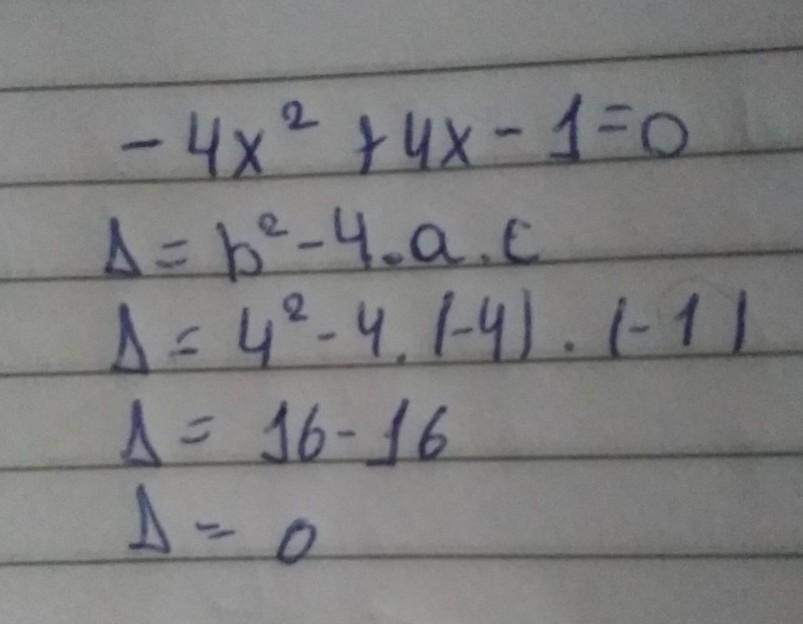 -4x² +4x-1=0
Δ= b²-4.a.c
Δ= 4²-4.(-4).(-1)
Δ= 16-16
Δ= 0